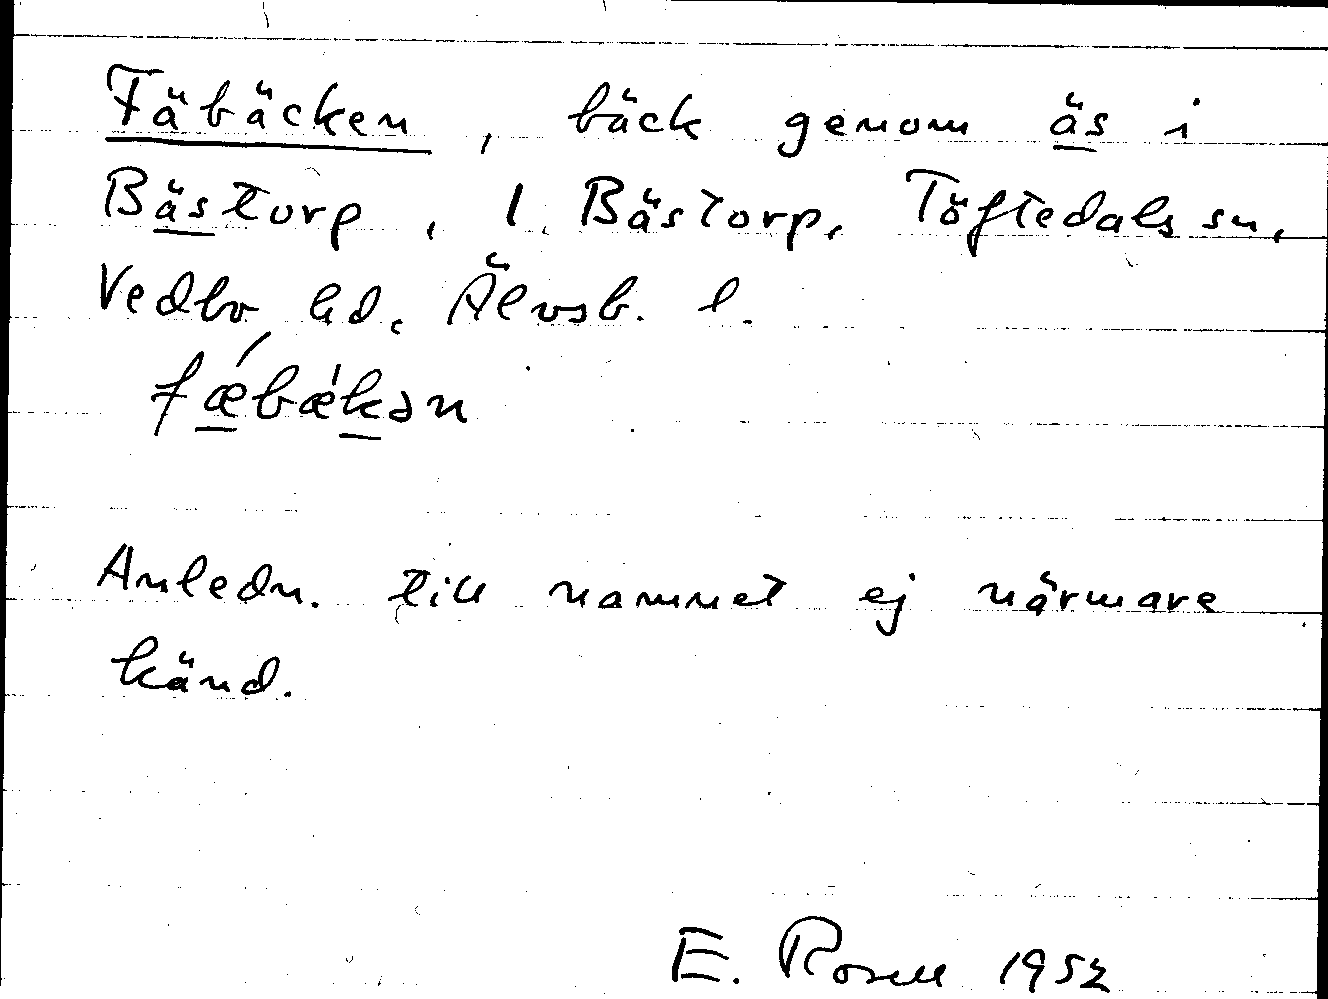 Fäbäcken, bäck genom äs i
Bästorp, 1 Bästorp, Töftedals sn,
Vedbo hd, Älvsb. l.
fæ´bæ`kən
Anledn. till namnet ej närmare
känd.
E. Rosell 1952